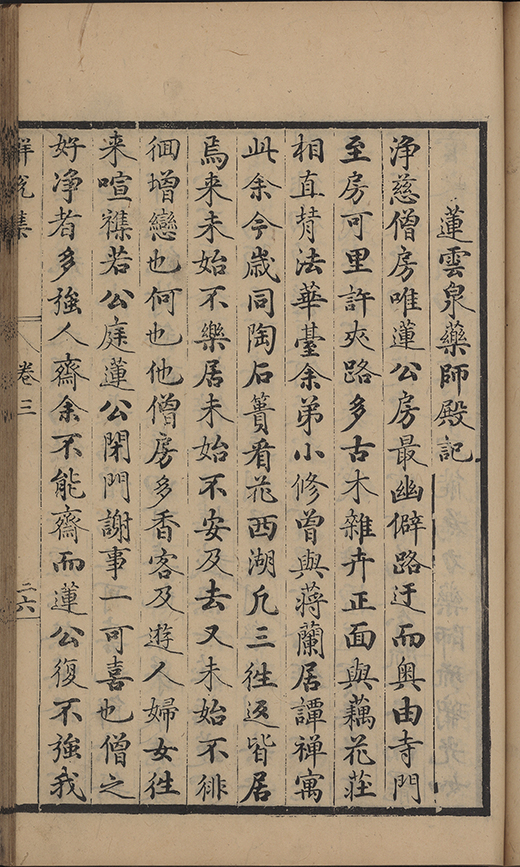 蓮雲泉藥師殿記
浄慈僧房唯蓮公房最幽僻路迂而奥由寺門
至房可里許夾路多古木雜卉正面與藕花莊
相直背法華臺余弟小修曾與蔣蘭居譚禪寓
此余今歲同陶石簣看花西湖凡三徃返皆居
焉来未始不樂居未始不安及去又未始不徘
徊增戀也何也他僧房多香客及遊人婦女徃
来喧襍若公庭蓮公閉門謝事一可喜也僧之
好浄者多強人齋余不能齋而蓮公復不強我
卷三
二六